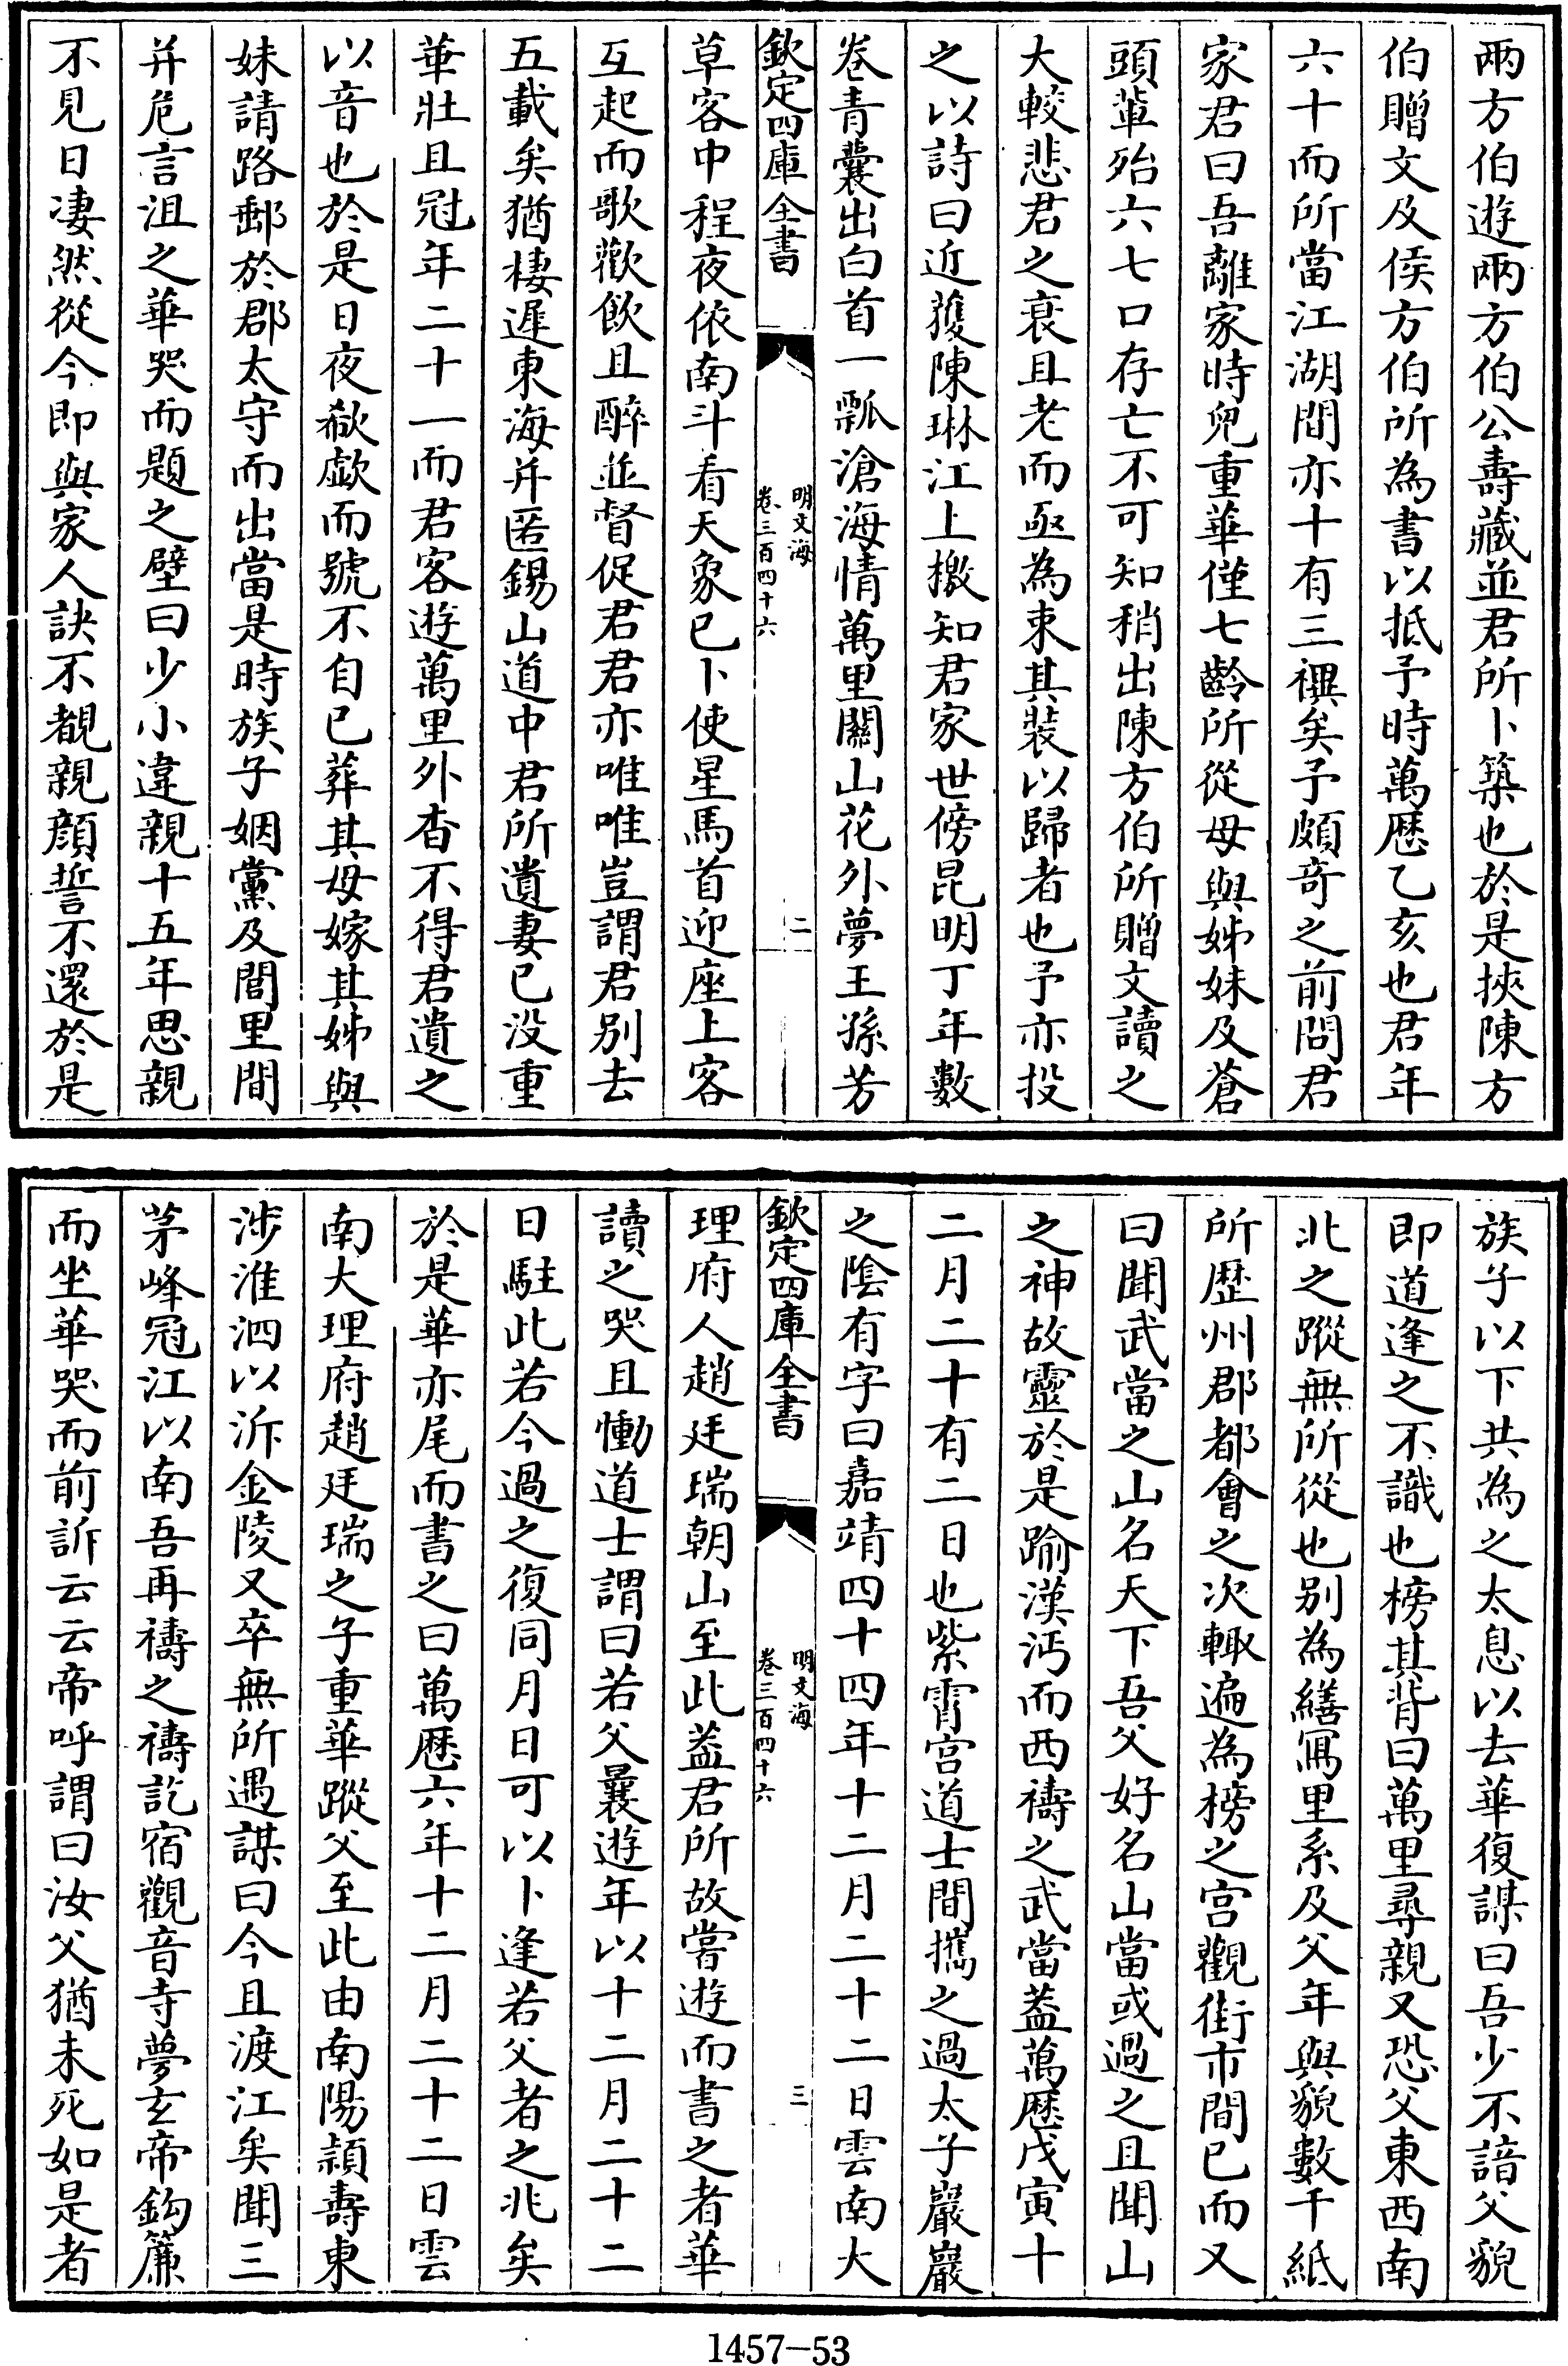 兩方伯遊兩方伯公壽藏並君所卜築也於是挾陳方
伯贈文及侯方伯所為書以抵予時萬厯乙亥也君年
六十而所當江湖間亦十有三禩矣予頗竒之前問君
家君曰吾離家時兒重華僅七齡所從母與姊妹及蒼
頭輩殆六七口存亡不可知稍出陳方伯所贈文讀之
大較悲君之衰且老而亟為束其裝以歸者也予亦投
之以詩曰近獲陳琳江上檄知君家世傍昆明丁年數
卷青囊出白首一瓢滄海情萬里關山花外夢王孫芳
欽定四庫全書
明文海
卷三百四十六
二
草客中程夜依南斗看天象已卜使星馬首迎座上客
互起而歌歡飲且醉並督促君君亦唯唯豈謂君别去
五載矣猶棲遲東海并匿錫山道中君所遺妻已没重
華壯且冠年二十一而君客遊萬里外杳不得君遺之
以音也於是日夜欷歔而號不自已葬其母嫁其姊與
妹請路郵於郡太守而出當是時族子姻黨及閭里間
并危言沮之華哭而題之壁曰少小違親十五年思親
不見日凄然從今即與家人訣不覩親顔誓不還於是
族子以下共為之太息以去華復謀曰吾少不諳父貌
即道逢之不識也榜其背曰萬里尋親又恐父東西南
北之蹤無所從也别為繕冩里系及父年與貌數千紙
所歴州郡都會之次輙遍為榜之宫觀街市間已而又
曰聞武當之山名天下吾父好名山當或過之且聞山
之神故靈於是踰漢沔而西禱之武當葢萬厯戊寅十
二月二十有二日也紫霄宫道士間攜之過太子巖巖
之陰有字曰嘉靖四十四年十二月二十二日雲南大
欽定四庫全書
明文海
卷三百四十六
三
理府人趙廷瑞朝山至此葢君所故嘗遊而書之者華
讀之哭且慟道士謂曰若父曩遊年以十二月二十二
日駐此若今過之復同月日可以卜逢若父者之兆矣
於是華亦尾而書之曰萬厯六年十二月二十二日雲
南大理府趙廷瑞之子重華蹤父至此由南陽潁壽東
涉淮泗以泝金陵又卒無所遇謀曰今且渡江矣聞三
茅峰冠江以南吾再禱之禱訖宿觀音寺夢玄帝鈎簾
而坐華哭而前訴云云帝呼謂曰汝父猶未死如是者
1457—53